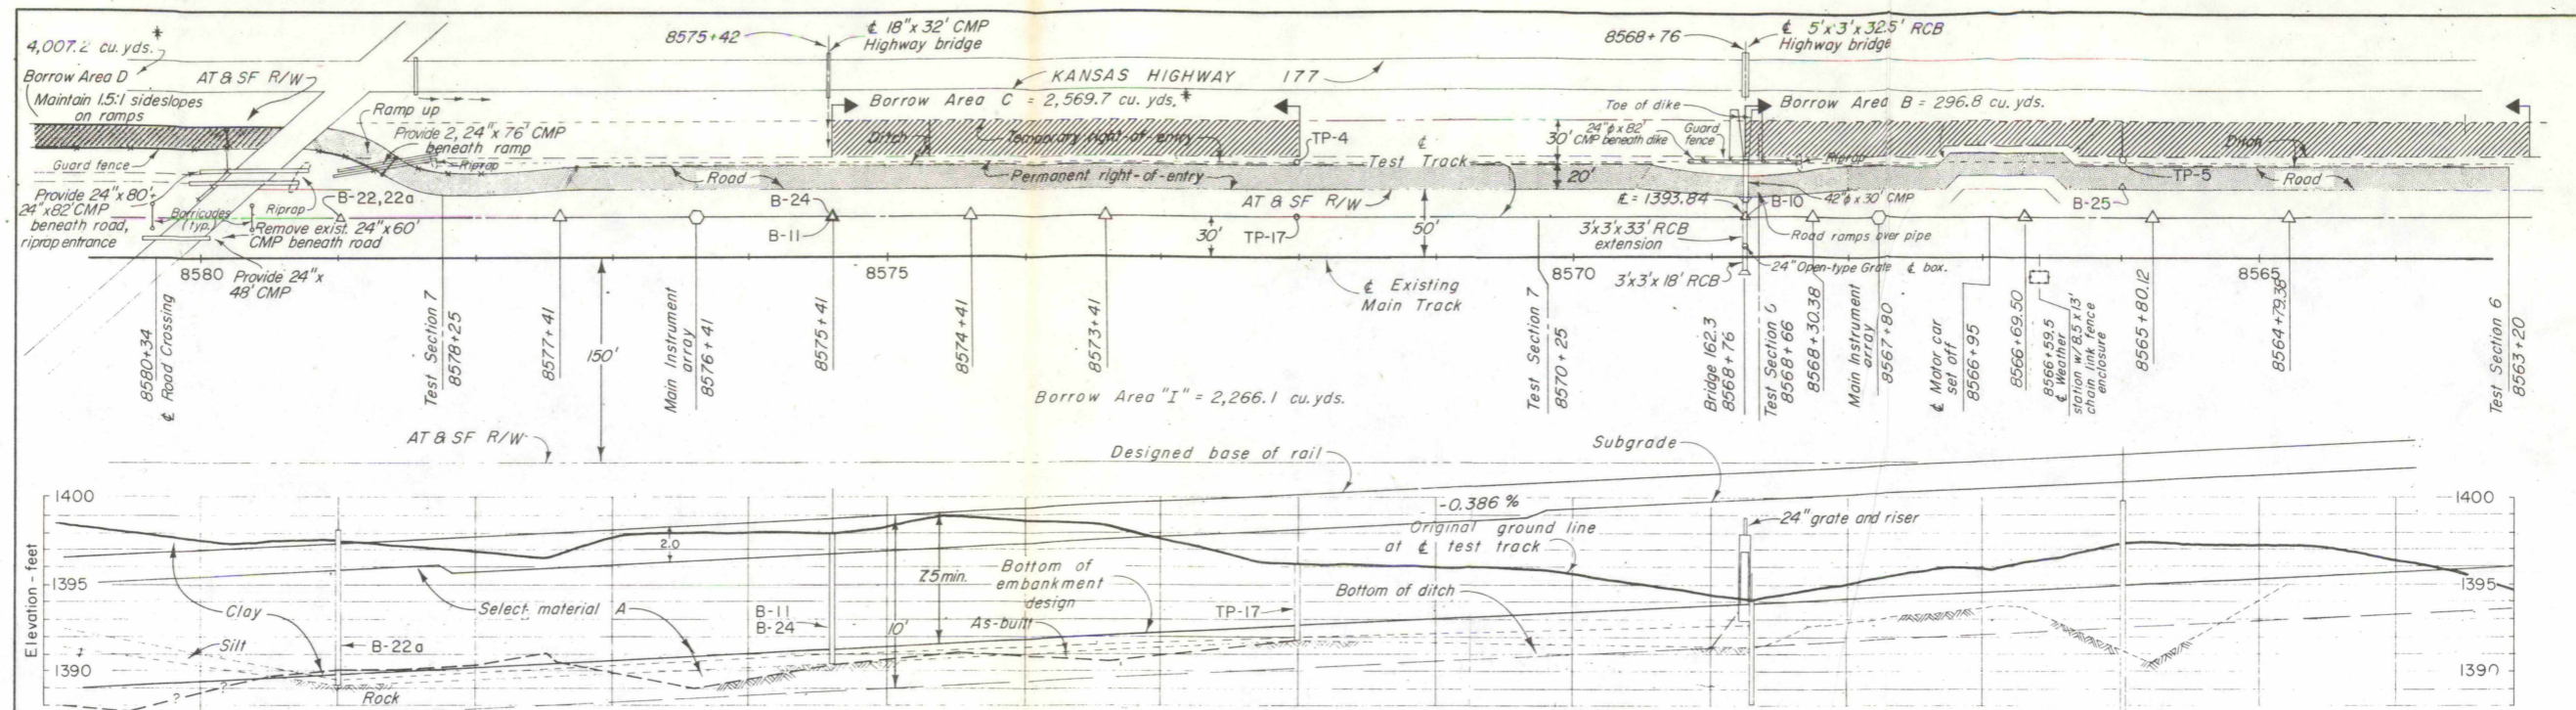 4,007.2 cu. yds.*
Borrow Area D
Maintain 1.5:1 sideslopes
on ramps
AT & SF R/W
Ramp up
Provide 2, 24" x 76' CMP
beneath ramp
Riprap
Guard fence
Provide 24" x 80'
24" x 82' CMP
beneath road,
riprap entrance
Barricades
(typ.)
Riprap
Remove exist. 24" x 60'
CMP beneath road
Provide 24" x
48' CMP
B-22,22a
8575+42
℄ 18" x 32' CMP
Highway bridge
KANSAS HIGHWAY 177
Borrow Area C = 2,569.7 cu. yds.*
Ditch
Temporary right-of-entry
Road
Permanent right-of-entry
TP-4
℄
Test Track
30'
20'
AT & SF R/W
B-24
B-11
30'
TP-17
50'
8568+76
℄ 5' x 3' x 32.5' RCB
Highway bridge
Toe of dike
Borrow Area B = 296.8 cu. yds.
24"ϕ x 82'
CMP beneath dike
Guard
fence
Riprap
Ditch
TP-5
Road
B-25
℄ = 1393.84
B-10
42"ϕ x 30' CMP
3'x3'x33' RCB
extension
Road ramps over pipe
24" Open-type Grate ℄ box.
3'x3'x18' RCB
8580
8575
8570
8565
℄ Existing
Main Track
8580+34
℄ Road Crossing
Test Section 7
8578+25
8577+41
150'
Main Instrument
array
8576+41
8575+41
8574+41
8573+41
Test Section 7
8570+25
Bridge 162.3
8568+76
Test Section 6
8568+66
8568+30.38
Main Instrument
array
8567+80
℄ Motor car
set off
8566+95
8566+69.50
8566+59.5
℄ Weather
station w/8.5 x 13'
chain link fence
enclosure
8565+80.12
8564+79.38
Test Section 6
8563+20
Borrow Area "I" = 2,266.1 cu. yds.
AT & SF R/W
Designed base of rail
Subgrade
1400
1400
-0.386 %
Original ground line
at ℄ test track
24" grate and riser
2.0
Elevation - feet
1395
1395
7.5 min.
Bottom of
embankment
design
Bottom of ditch
Clay
Select material A
B-11
B-24
10'
As-built
TP-17
Silt
B-22a
1390
1390
?
?
Rock